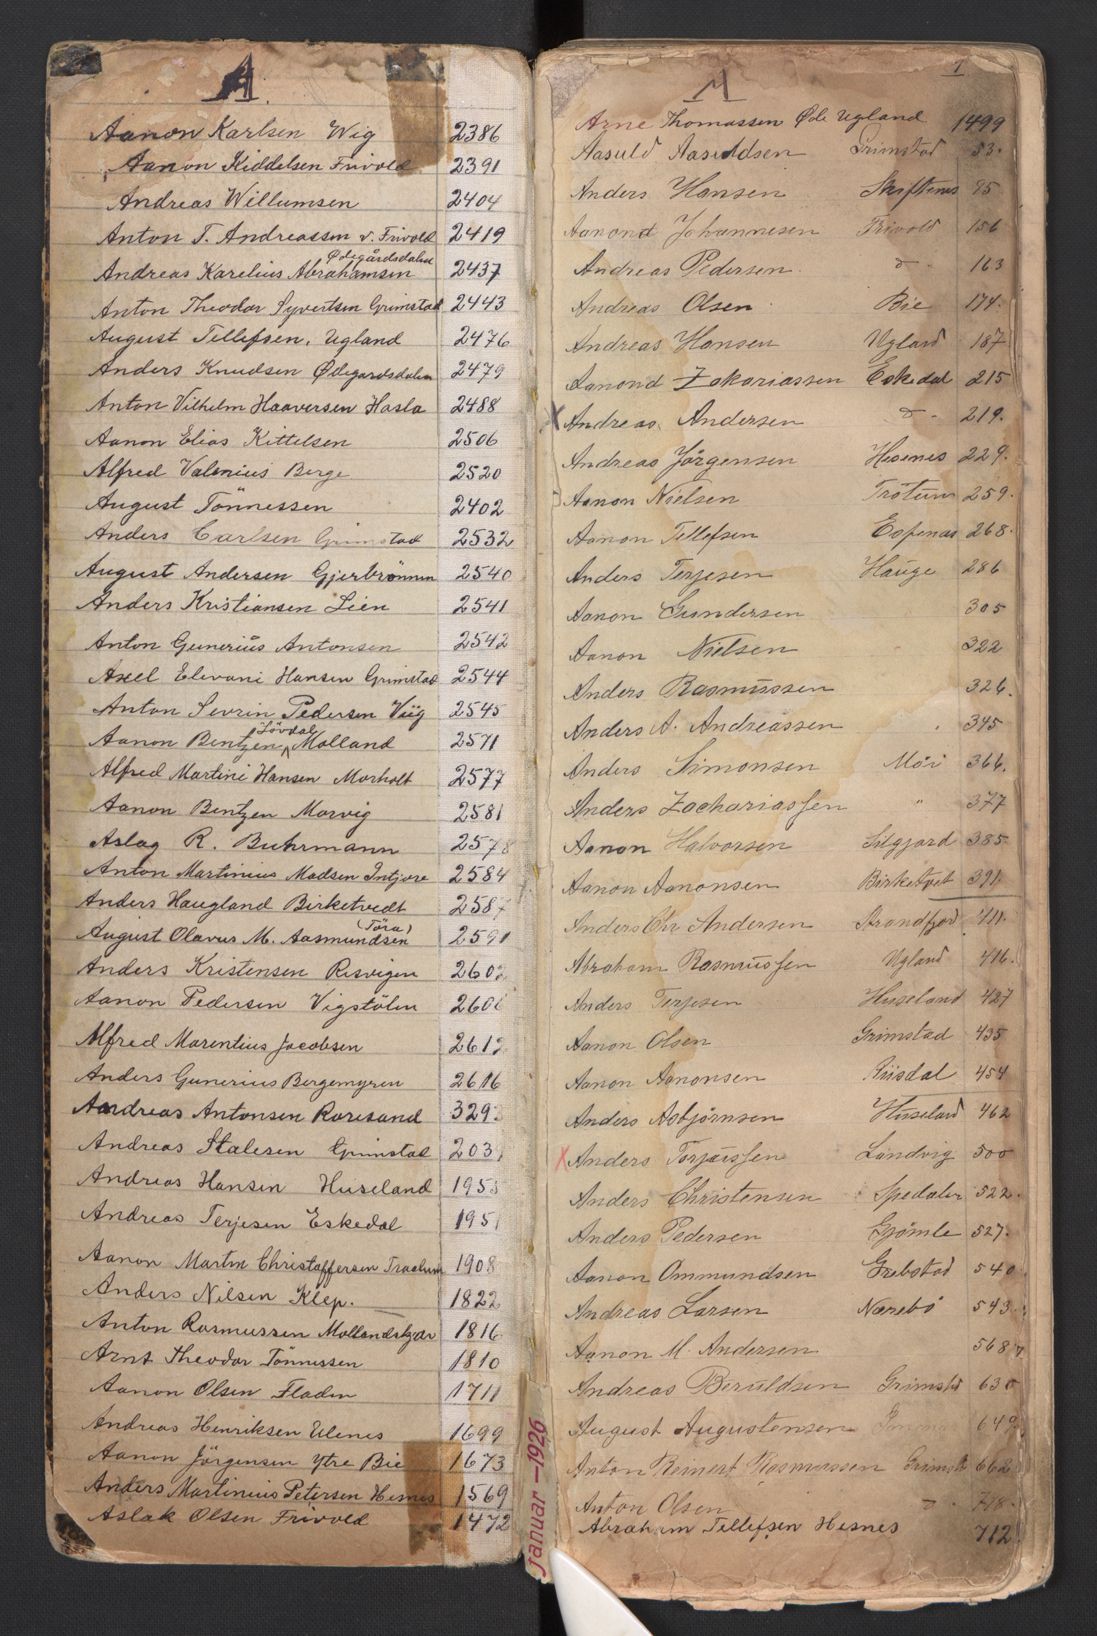 A.
Aanon Karlsen Wig 2386
Aanon Kiddelsen Frivold 2391
Andreas Willumsen 2404
Anton T. Andreassen v. Frivold 2419
Ødegårdsdalen
Andreas Karelius Abrahamsen 2437
Anton Theodor Syvertsen Grimstad 2443
August Tellefsen, Ugland 2476
Anders Knudsen Ødegardsdalen 2479
Anton Vilhelm Haaversen Hasla 2488
Aanon Elias Kittelsen 2506
Alfred Valenius Berge 2520
August Tönnessen 2402
Anders Carlsen Grimstad 2532
August Andersen Gjerbrönnen 2540
Anders Kristiansen Lien 2541
Anton Gunerius Antonsen 2542
Axel Elevani Hansen Grimstad 2544
Anton Sevrin Pedersen Viig 2545
Lövdal
Aanon Bentzen Molland 2571
Alfred Martini Hansen Morholt 2577
Aanon Bentzen Morvig 2581
Aslag R. Buhrmann 2578
Anton Martinius Madsen Intjore 2584
Anders Haugland Birketvedt 2587
(Töra)
August Olavus M. Aasmundsen 2591
Anders Kristensen Resvigen 2602
Aanon Pedersen Vigstölen 260
Alfred Marentius Jacobsen 2612
Anders Gunerius Bergemyren 2616
Andreas Antonsen Roresand 329
Andreas Stalesen Grimstad 203
Andreas Hansen Huseland 1955
Andreas Terjesen Eskedal 195
Aanon Martin Christoffersen Traelum 1908
Anders Nilsen Klep. 1822
Anton Rasmussen Mollandskjær 1816
Arnt Theodor Tönnessen 1810
Aanon Olsen Fladen 1711
Andreas Henriksen Ulenes 1699
Aanon Jörgensen Ytre Bie 1673
Anders Martinius Petersen Hesnes 1569
Aslak Olsen Frivold 1472
januar - 1926
1
A
Arne Thomassen Øde Ugland 1499
Aasuld Aasuldsen Grimstad 53.
Anders Hansen Skiftenes 95
Aanond Johannesen Frivold 156
Andreas Pedersen do - 163
Andreas Olsen Bie 174.
Andreas Hansen Ugland 187
Aanond Zakariassen Eskedal 215
X Andreas Andersen do - 219.
Andreas Jörgensen Hesnes 229.
Aanon Nielsen Trötum 259.
Aanon Tellefsen Espenæs 268.
Anders Terjesen Hauge 286
Aanon Gundersen 305
Aanon Nielsen 322
Anders Rasmussen 326.
Anders A. Andreassen 345
Anders Simonsen Möi 366.
Anders Zachariassen " 377
Aanon Halvorsen Silgjord 385
Aanon Aanonsen Birketvet 391
Anders Chr Andersen Strandfjord 411.
Abraham Rasmussen Ugland 416.
Anders Terjesen Huseland 427
Aanon Olsen Grimstad 435
Aanon Aanonsen Riisdal 454
Anders Asbjörnsen Huseland 462
X Anders Torjussen Landvig 500
Anders Christensen Spedalen 522.
Anders Pedersen Gjömle 527.
Aanon Ommundsen Grebstad 540
Andreas Larsen Nærebö 543.
Aanon M. Andersen 568
Andreas Beruldsen Grimstd 630
August Augustensen 649
Anton Reinert Rasmussen Grimst 662
Anton Olsen do - 718.
Abraham Tellefsen Hesnes 712